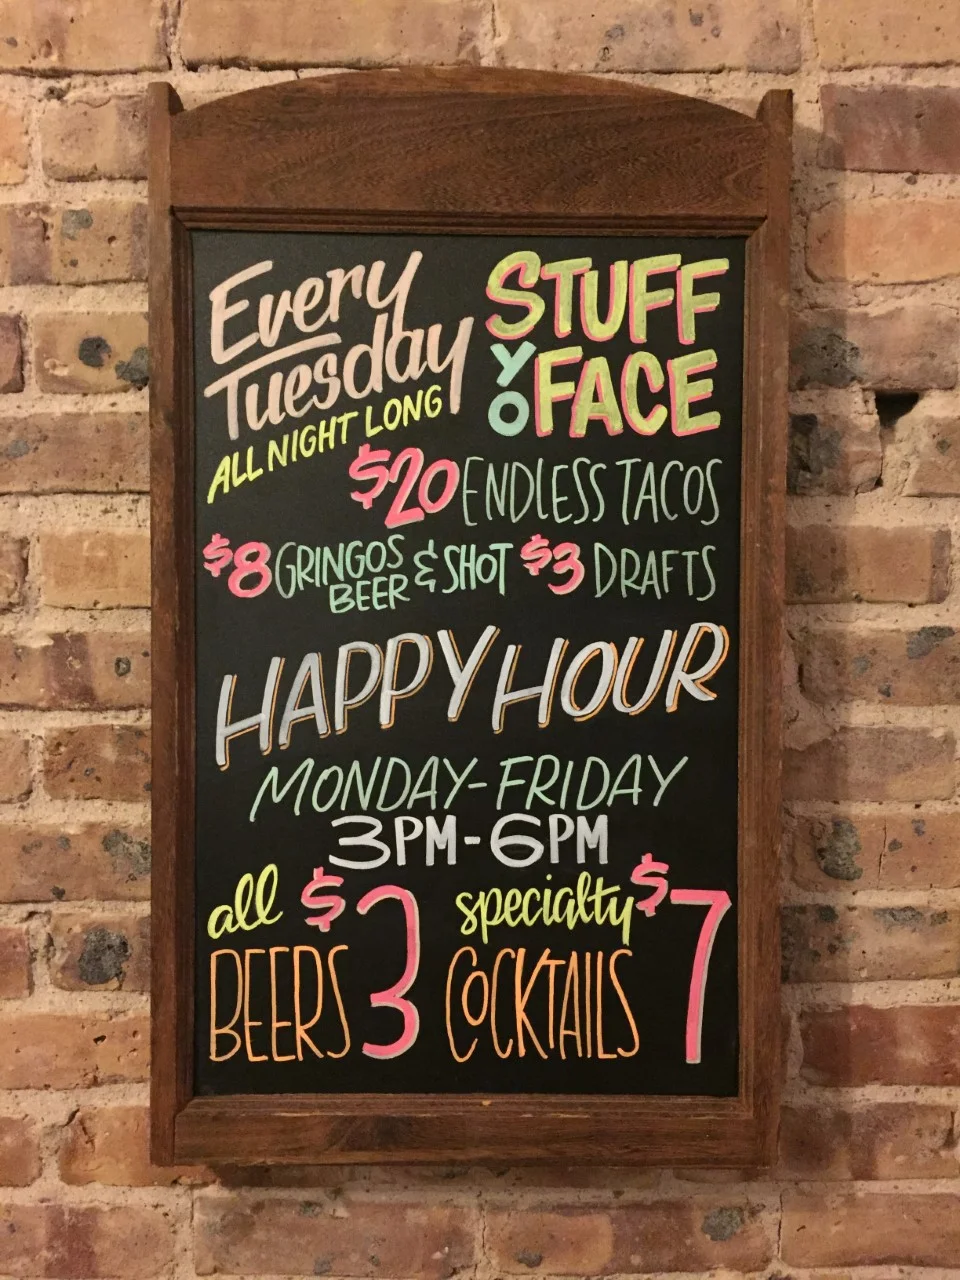 Every
Tuesday
ALL NIGHT LONG
STUFF
YO FACE
$20 ENDLESS TACOS
$8 GRINGOS BEER & SHOT $3 DRAFTS
HAPPY HOUR
MONDAY-FRIDAY
3PM-6PM
all BEERS $3
specialty COCKTAILS $7